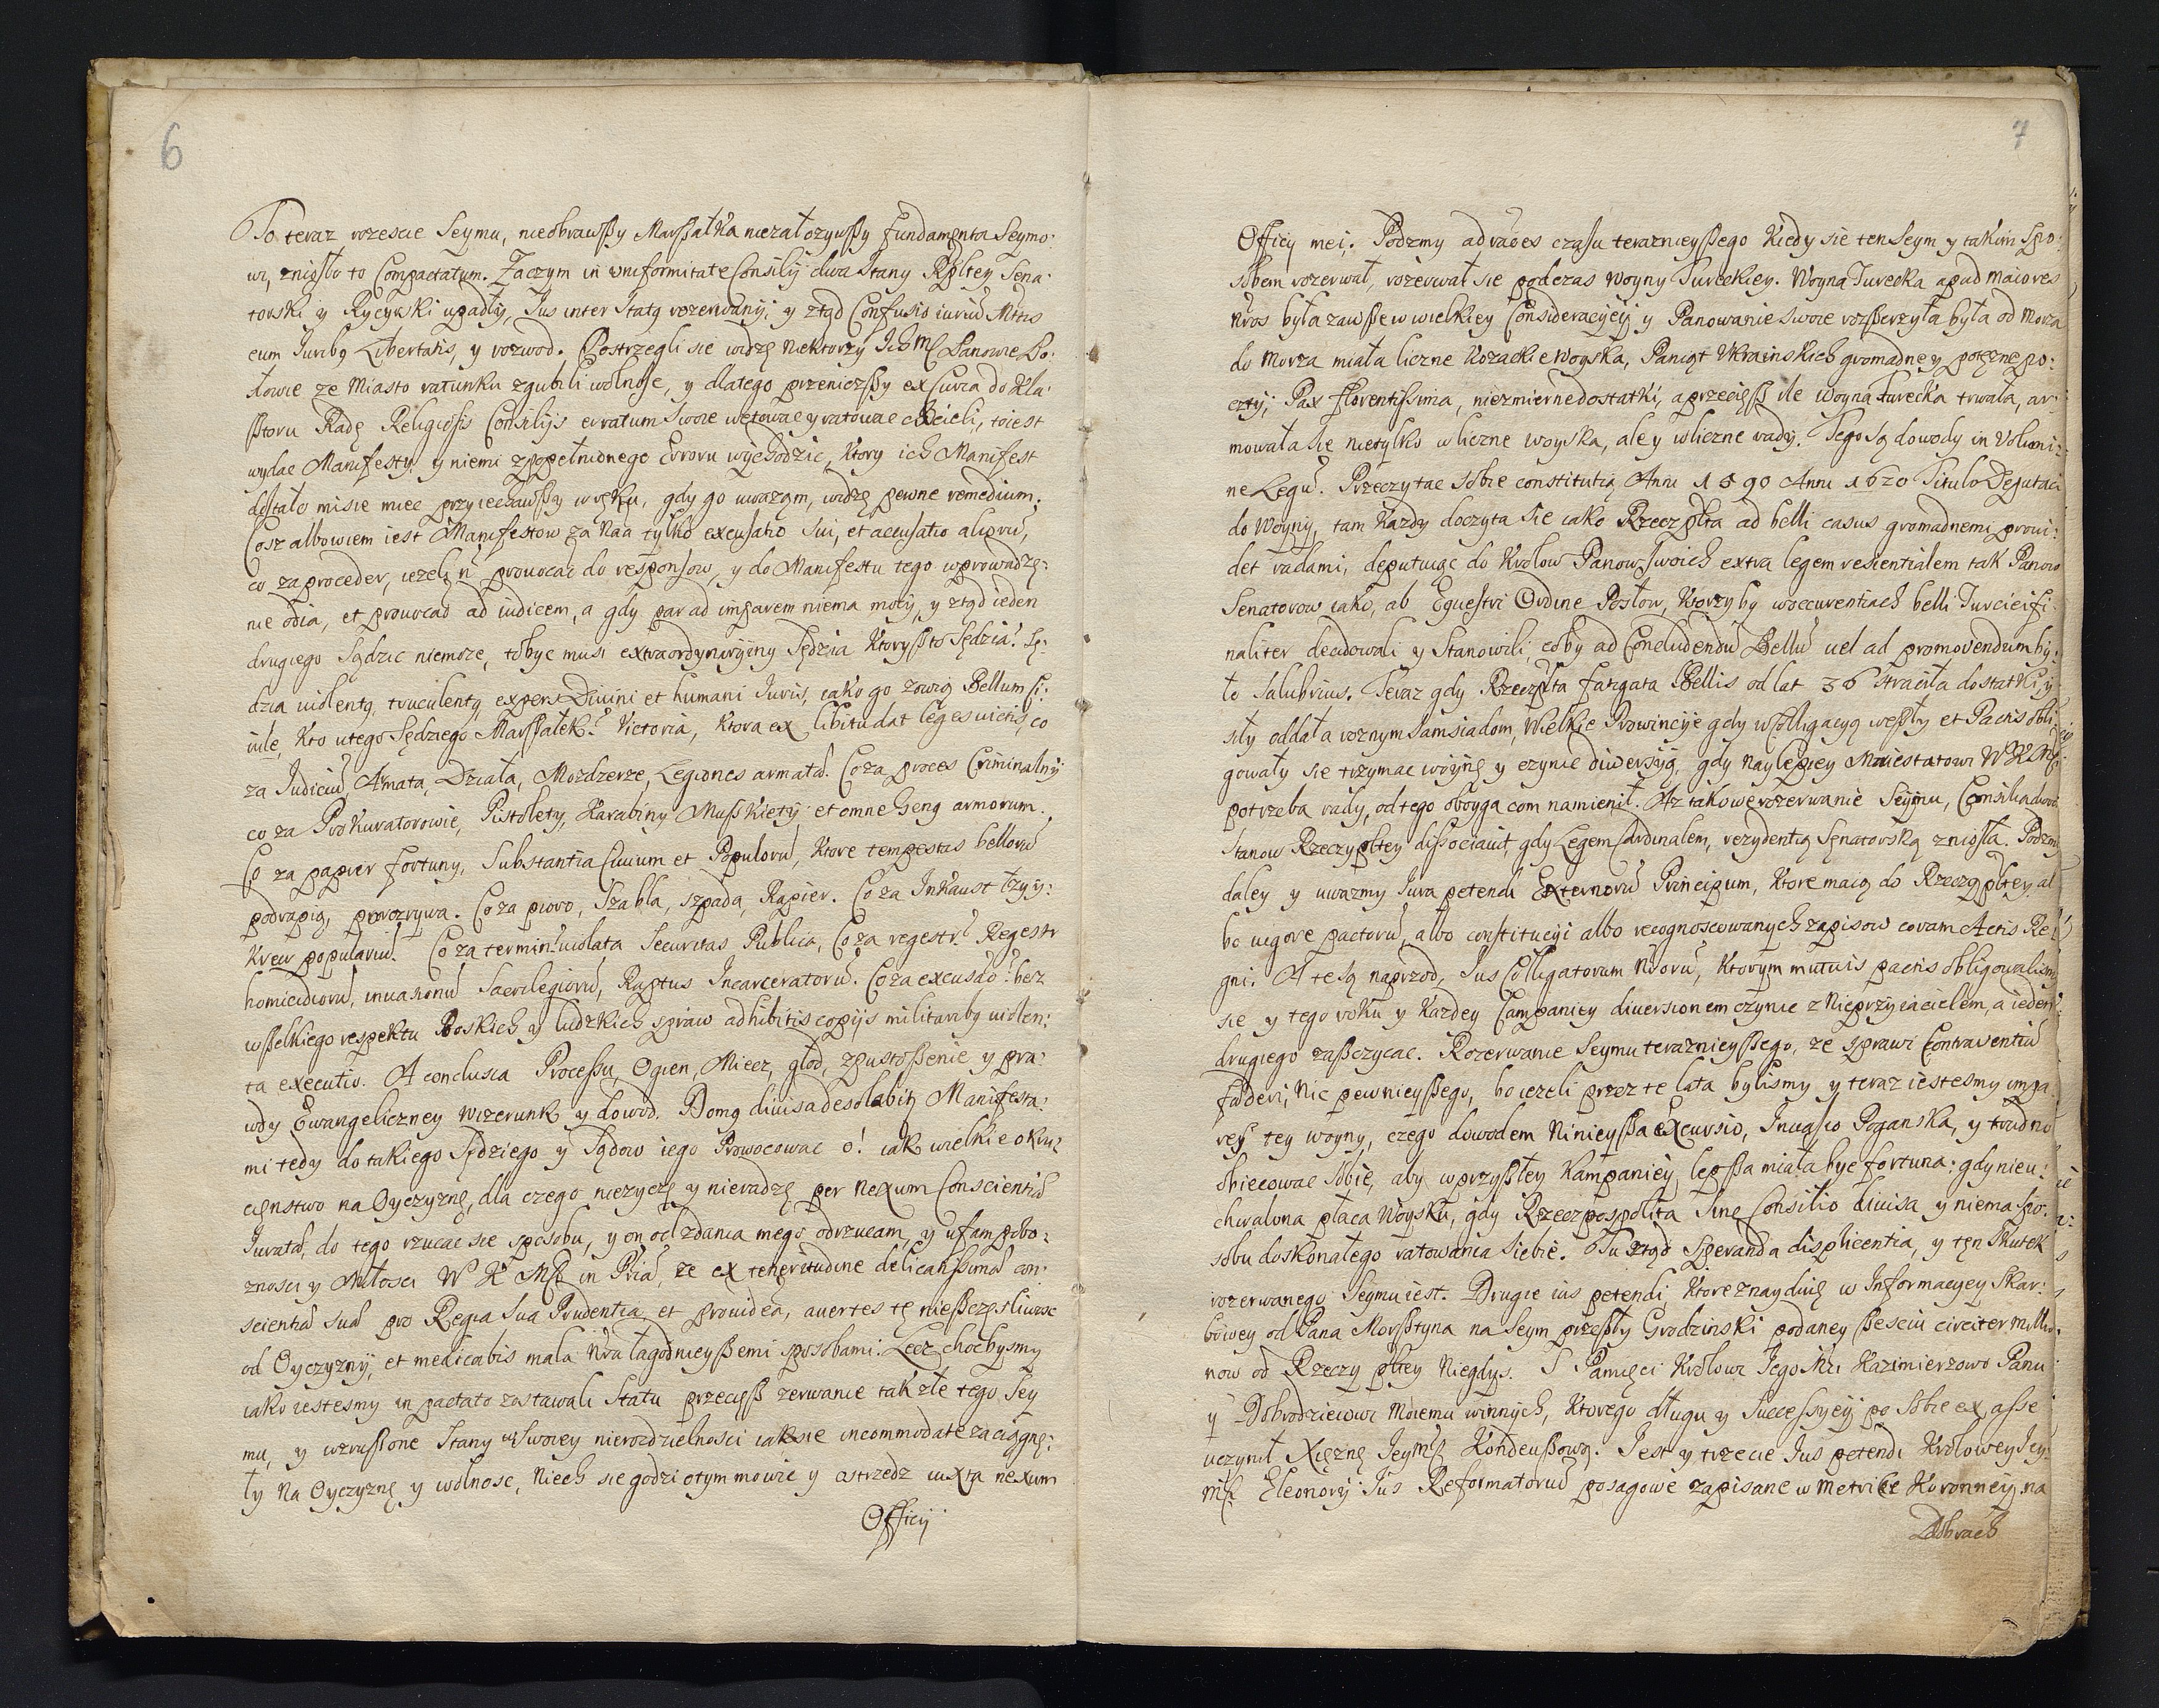 6
To teraz rozescie Seymu, nieobrawszy Marszałka niezałozywszy fundamenta Seymo:
wi, zniosło to Compactatum. Zaczym in uniformitate Consilij dwa Stany Rzpltey Sena:
torski y Rycyrski upadły, Jus inter Statg rozerwany; y ztąd Confusio iuriu͂ Mtis
cum Juribg Libertatis, y rozwod. Postrzegli sie widzę Niektorzy Ich Mć Panowie Po:
słowie ze Miasto ratunku zgubili wolnosc, y dlatego przeniozszy ex Curia do Kla:
sztoru Radę Religiosis Consilijs erratum swoie wetowac y ratowac chcieli, toiest
wydac Manifesty, y niemi zpopełnionego Erroru wychodzic, Ktory ich Manifest
dostało misie miec przyiechawszy w ręku, gdy go uwazam, widzę pewne remedium.
Cosz albowiem iest Manifestow za Naa tylko excusatio Sui, et accusatio alioru͂,
co za proceder, iezeli n͂ prouocac do responsow, y do Manifestu tego wprowadzę:
nie odia, et prouocao ad iudicem, a gdy par ad imparem niema mocy, y ztąd ieden
drugiego Sądzic niemoze, tobyc musi extraordynaryiny Sędzia Ktoryszto Sędzia? Sę:
dzia uiolentg, truculentg, expers Diuini et humani Juris, iako go zowią Bellum Ci:
uile, Kto utego Sędziego Marszałek? Victoria, Ktora ex libitu dat leges uictis, co
za Judiciu͂, Armata, Działa, Mozdzerze, Legiones armatae. Co za proces Criminalny
co za Prokuratorowie, Pistolety, Karabiny Muszkiety et omne Geng armorum.
Co za papier fortuny, Substantia Ciuium et Populoru͂, Ktore tempestas belloru͂
podrapią, porozrywa. Co za pioro, Szabla, szpada, Rapier. Co za Inkaust łzy y:
Krew populariu͂. Co za termin? uiolata Securitas Publica, Co za regestr? Regestr
homicidioru͂, inuasionu͂ Sacrilegioru͂, Raptus Incarceratoru͂. Co za excusao? bez
wszelkiego respektu Boskich y ludzkich spraw adhibitis copijs militaribg uiolen:
ta executio. A conclusia Processu, Ogien, Miecz, głod, zpustoszenie y pra:
wdy Ewangeliczney wizerunk y dowod. Domg diuisa desolabitg Manifesta:
mi tedy do takiego Sędziego y Sądow iego Prowocowac o! iak wielkie okru:
cięnstwo na Oyczyznę, dla czego niezyczę y nieradzę per Nexum Conscientiae
Juratae, do tego rzucac sie sposobu, y on od zdania mego odrzucam, y ufam pobo:
znosci y Miłosci W K Mći in Priae, ze ex teneritudine delicatissimae con:
scientiae suae pro Regia Sua Prudentia et prouidea, auertes tę nieszczęsliwosc
od Oyczyzny, et medicabis mala Nra łagodnieyszemi sposobami. Lecz chocbysmy
iako iestesmy in pactato zostawali Statu przeciesz zerwanie tak złe tego Sey
mu, y wzruszone Stany w swoiey nierozdzielnosci iak sie incommodate zaciągnę:
ły na Oyczyznę y wolnosc, Niech sie godzi otym mowic y ostrzedz iuxta nexum
Officij
7
Officij mei. Podzmy ad raões czasu teraznieyszego Kiedy sie ten Seym y takim Spo:
sobem rozerwał, rozerwał sie podczas woyny Tureckiey. Woyna Turecka apud maiores
Nros była zawsze w wielkiey Consideracyiey y Panowanie swoie rozszerzyła była od Morza
do Morza miała liczne Kozackie woyska, Paniąt Ukrainskich gromadne y potęzne po:
czty, Pax florentissima, niezmierne dostatki, a przeciesz ile woyna turecka trwała, ar:
mowała się nietylko w liczne woyska, ale y wliczne rady. Tego są dowody in Volumi:
ne Legu͂. Przeczytac sobie constitutią Anni 1590 Anni 1620 Titulo Deputaci
do Woyny, tam Kazdy doczyta sie iako Rzeczplta ad belli casus gromadnemi proui:
det radami, deputuiąc do Krolow Panow Swoich extra legem resientialem tak Panow
Senatorow iako, ab Equestri Ordine Posłow, Ktorzyby woccurentiach belli Turcici fi:
naliter decidowali y Stanowili, coby ad Concludendu͂ Bellu͂ uel ad promouendum by:
ło Salubrius. Teraz gdy Rzeczplta fatigata Bellis od lat 36 straciła dostatki, y
siły oddała roznym samsiadom, Wielkie Prowincyie gdy w Colligacyą weszły et Pactis obli:
gowały sie trzymac woynę y czynic diwersyą, gdy naylepiey Maiestatowi W K Mći
potrzeba rady, od tego oboyga com namienił. Az takowe rozerwanie Seymu, Consilia dwoch
Stanow Rzeczypltey dissociauit, gdy Legem Cardinalem, rezydentią Senatorską zniosła. Podzmy
daley y uwazmy Jura petendi Externoru͂ Principum, Ktore maią do Rzeczypltey al
bo uigore pactoru͂, albo constitucyi albo recognoscowanych zapisow coram Actis Re:
gni. A te są naprzod, Jus Colligatorum Nroru͂, Ktorym mutuis pactis obligowalismy
sie y tego roku y Kazdey Campaniey diuersionem czynic z Nieprzyiacielem, a ieden
drugiego zaszczycac. Rozerwanie Seymu teraznieyszego, ze sprawi Contrauentiu͂
faederi, Nic pewnieyszego, bo iezeli przez te lata bylismy y teraz iestesmy impa
res tey woyny, czego dowodem Ninieysza excursio, Inuasio Poganska, y trudno
obiecowac sobie, aby wprzyszłey Kampaniey lepsza miała byc fortuna: gdy nieu:
chwalona płaca Woysku, gdy Rzeczpospolita Sine Consilio diuisa y niema spo:
sobu doskonałego ratowania siebie. Tu ztąd Speranda displicentia, y ten Skutek
rozerwanego Seymu iest. Drugie ius petendi Ktore znayduię w Informacyey Skar:
bowey od Pana Morsztyna na Seym przeszły Grodzinski podaney szesciu circiter millio:
now od Rzeczypltey Niegdys. S Pamięci Krolowi Jego Mci Kazimierzowi Panu
y Dobrodzieiowi Moiemu winnych, Ktorego długu y Successyey po sobie ex asse
uczynił Xięznę Jeymć Kondeuszową. Jest y trzecie Jus petendi Krolowey Jey:
mći Eleonory Jus Reformatoru͂ posagowe zapisane w metrice Koronney, na
Dobrach